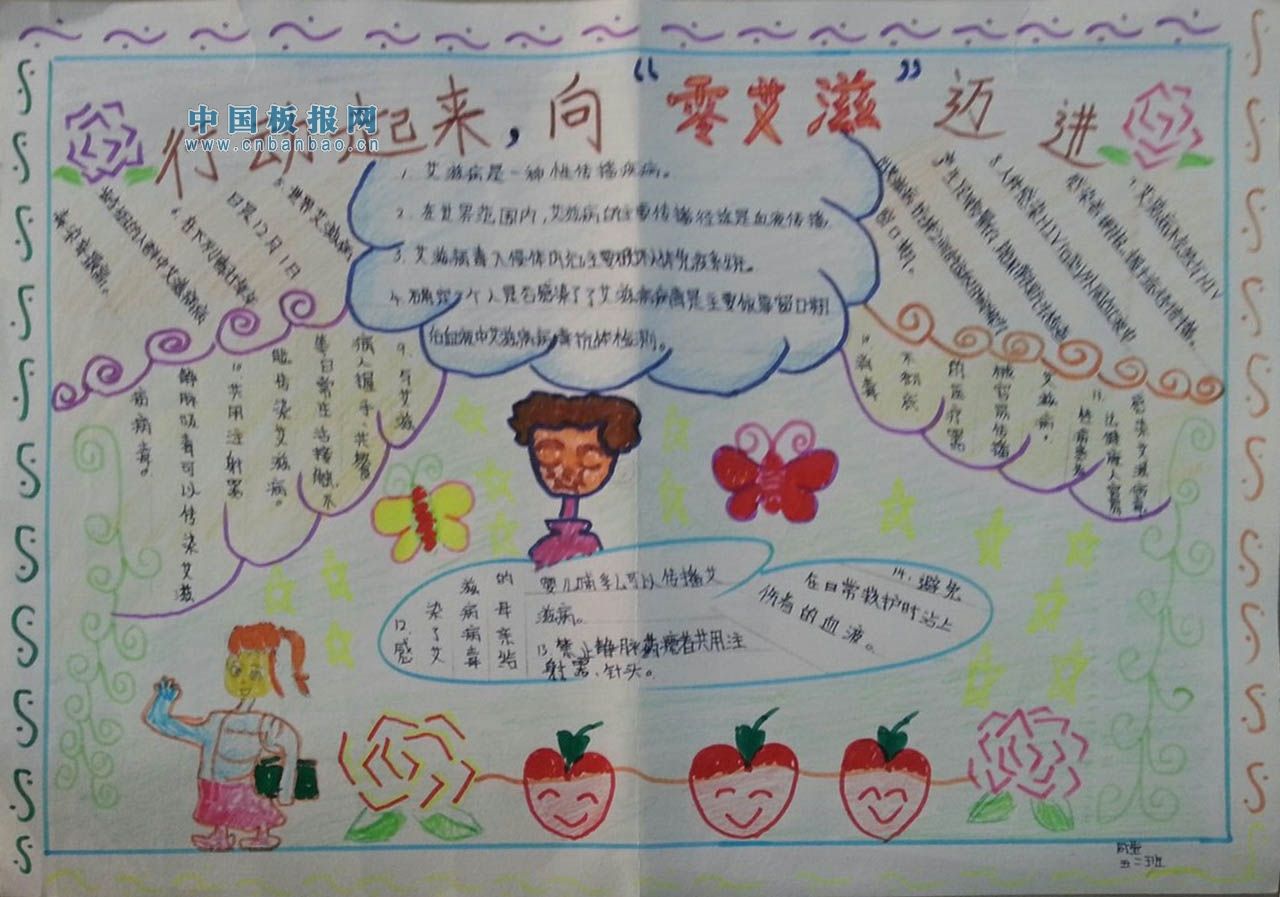 行动起来，向“零艾滋”迈进
中国板报网
www.cnbanbao.cn
1. 艾滋病是一种性传播疾病。
2. 在世界范围内，艾滋病的主要传播经途是血液传播
3. 艾滋病毒入侵体内先主要破坏人体免疫系统。
4. 确定一个人是否感染了艾滋病病毒是主要依靠窗口期
后血液中艾滋病病毒抗体检测。
5. 世界艾滋病
日是12月1日
6. 在下列哪个年
龄组的人群中艾滋病病
毒染率最高。
7. 艾滋病不会经有HIV
感染者
8. 人体感染HIV后到外周血液中
窗口期。
9. 与艾滋
病人握手、共餐等
等日常生活接触不
能传染艾滋病。
10. 共用注射器
静脉吸毒可以传染艾滋
病病毒。
消毒
不彻底
的医疗器
械容易传播
艾滋病，
11. 比健康人容易
感染艾滋病毒
12. 感染了艾滋病病毒的母亲给
婴儿哺乳可以传播艾
滋病。
13. 禁止静脉药瘾者共用注
射器、针头。
14. 避免
在日常救护时沾上
伤者的血液。
五二班